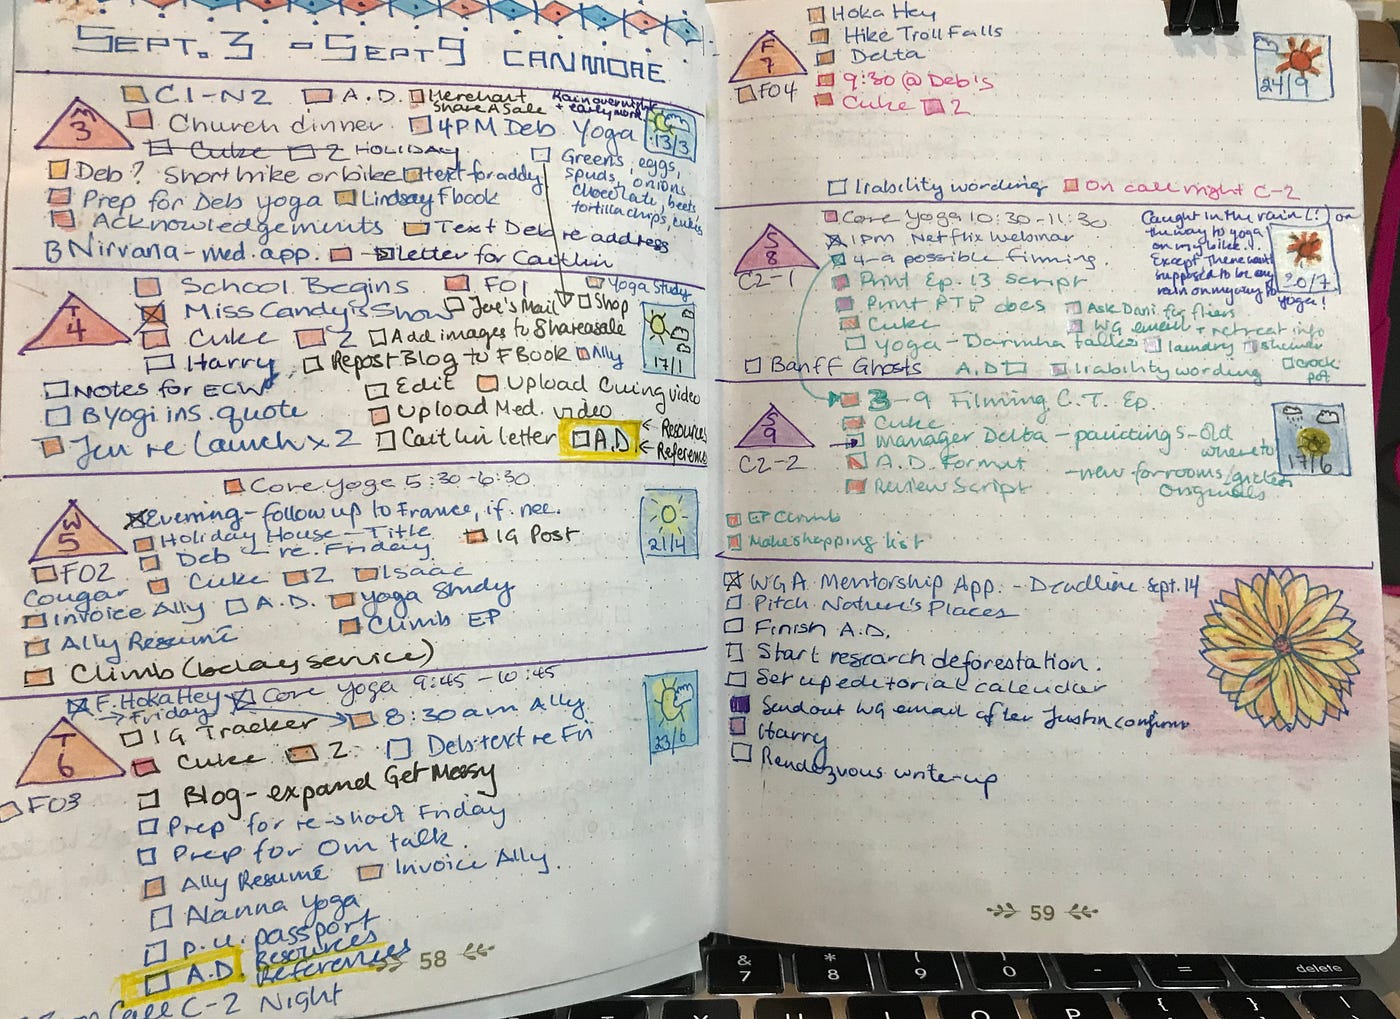 SEPT. 3 - SEPT 9 CANMORE
M
3
C1-N2 A.D. Merchant
Share A Sale
Rain overnight
+ early morn.
13/3
Church dinner 4PM Deb Yoga
Cuke 2 HOLIDAY
Greens, eggs,
spuds, onions
chocolate, beets
tortilla chips, cukes
Deb? Short hike or bike text for addy
Prep for Debs yoga Lindsay Fbook
Acknowledgements Text Deb re address
B Nirvana - med. app. letter for Caitlin
T
4
School Begins F01 Yoga Study
Miss Candy's Show Joe's Mail Shop
Cuke 2 Add images to Shareasale
17/1
Harry Repost Blog to FBook Ally
Notes for ECW Edit Upload Cuing video
BYogi ins. quote Upload Med. video
Jen re launch x 2 Caitlin letter A.D. ← Resources
← Reference
W
5
Core Yoga 5:30-6:30
Evening - follow up to France, if nec.
Holiday House - Title IG Post
Deb re. Friday
21/4
F02 Cuke 2 Isaac
Cougar
Invoice Ally A.D. Yoga Study
Ally Resumé Climb EP
Climb (belay service)
T
6
F. Hoka Hey Core Yoga 9:45 - 10:45
→ Friday
IG Tracker 8:30 am Ally
23/6
Cuke 2 Debs text re Fri
F03
Blog - expand Get Messy
Prep for re-shoot Friday
Prep for Om talk.
Ally Resumé Invoice Ally.
Alanna Yoga
p.u. passport
A.D. Resources
References
Call C-2 Night
58
F
7
F04
Hoka Hey
Hike Troll Falls
Delta
9:30 @ Deb's
Cuke 2
24/9
liability wording On call night C-2
S
8
C2-1
Core Yoga 10:30-11:30
1PM Netflix webinar
4-a possible filming.
Print Ep. 13 script
Print PTP docs Ask Dani for fliers
Cuke WG email + retreat info
Yoga - Darmha talk laundry
Banff Ghosts A.D. liability wording crock
pot
Caught in the rain (!) on
the way to yoga
on my bike...!
Except There wasn't
supposed to be any
rain on my way to
yoga!
20/7
S
9
C2-2
3-9 Filming C.T. Ep.
Cuke
Manager Delta - paintings - old
where to
A.D. Format - new for rooms/
originals
Review Script
17/6
EP Climb
Make shopping list
WGA Mentorship App. - Deadline Sept. 14
Pitch Nature's Places
Finish A.D.
Start research deforestation.
Set up editorial calendar
Send out WG email after Justin confirm
Harry
Rendezvous write-up
59
&
7
*
8
(
9
)
0
-
=
delete
Y
U
I
O
P
{
[
}